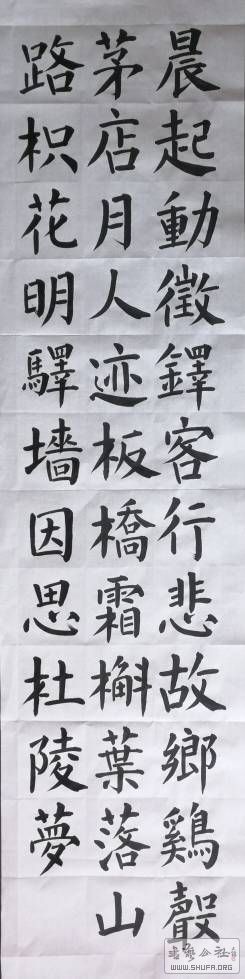 晨起動徵鐸客行悲故鄉鷄聲
茅店月人迹板橋霜槲葉落山
路枳花明驛墻因思杜陵夢
WWW.SHUFA.ORG